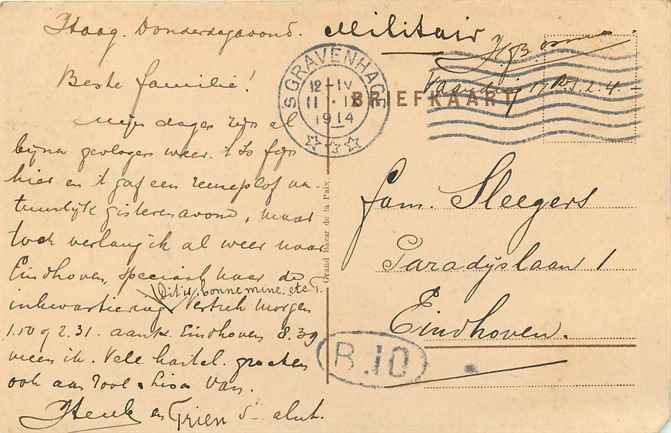 Haag. Donderdagavond.
Beste familie!
Mijn dagen zijn al
bijna gevlogen weer. 't Is fijn
hier en 't gaf een
gisterenavond, maar
toch verlang ik al weer naar
Eindhoven, speciaal naar de
(Dit is bonne mine, etc.)
inkwartiering. Vertrek morgen
1.50 of 2.31. aank. Eindhoven 8.39
meen ik. Vele hartel. groeten
ook aan Toos & Lisa van.
Henk en Trien
Militair
'S GRAVENHAGE
12-IV
1914
BRIEFKAART
Grand Bazar de la Paix.
Fam. Sleegers
Paradijslaan 1
Eindhoven.
B.10